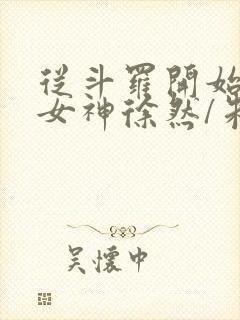 從斗羅開始
女神徐然/
吳懷中